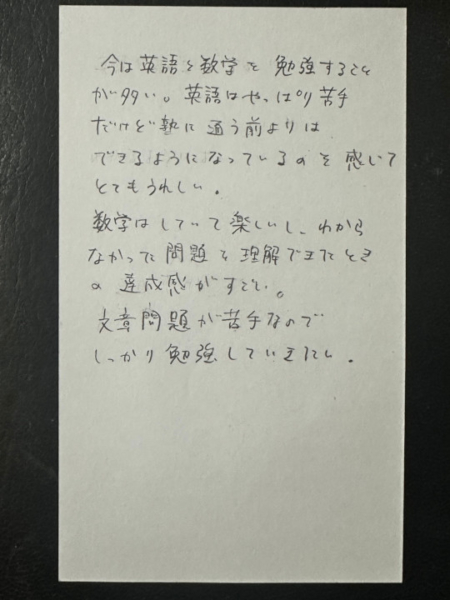 今は英語と数学を勉強すること
が多い。英語はやっぱり苦手
だけど塾に通う前よりは
できるようになっているのを感じて
とてもうれしい。
数学はしていて楽しいし、わから
なかった問題を理解できたとき
の達成感がすごい。
文章問題が苦手なので
しっかり勉強していきたい。